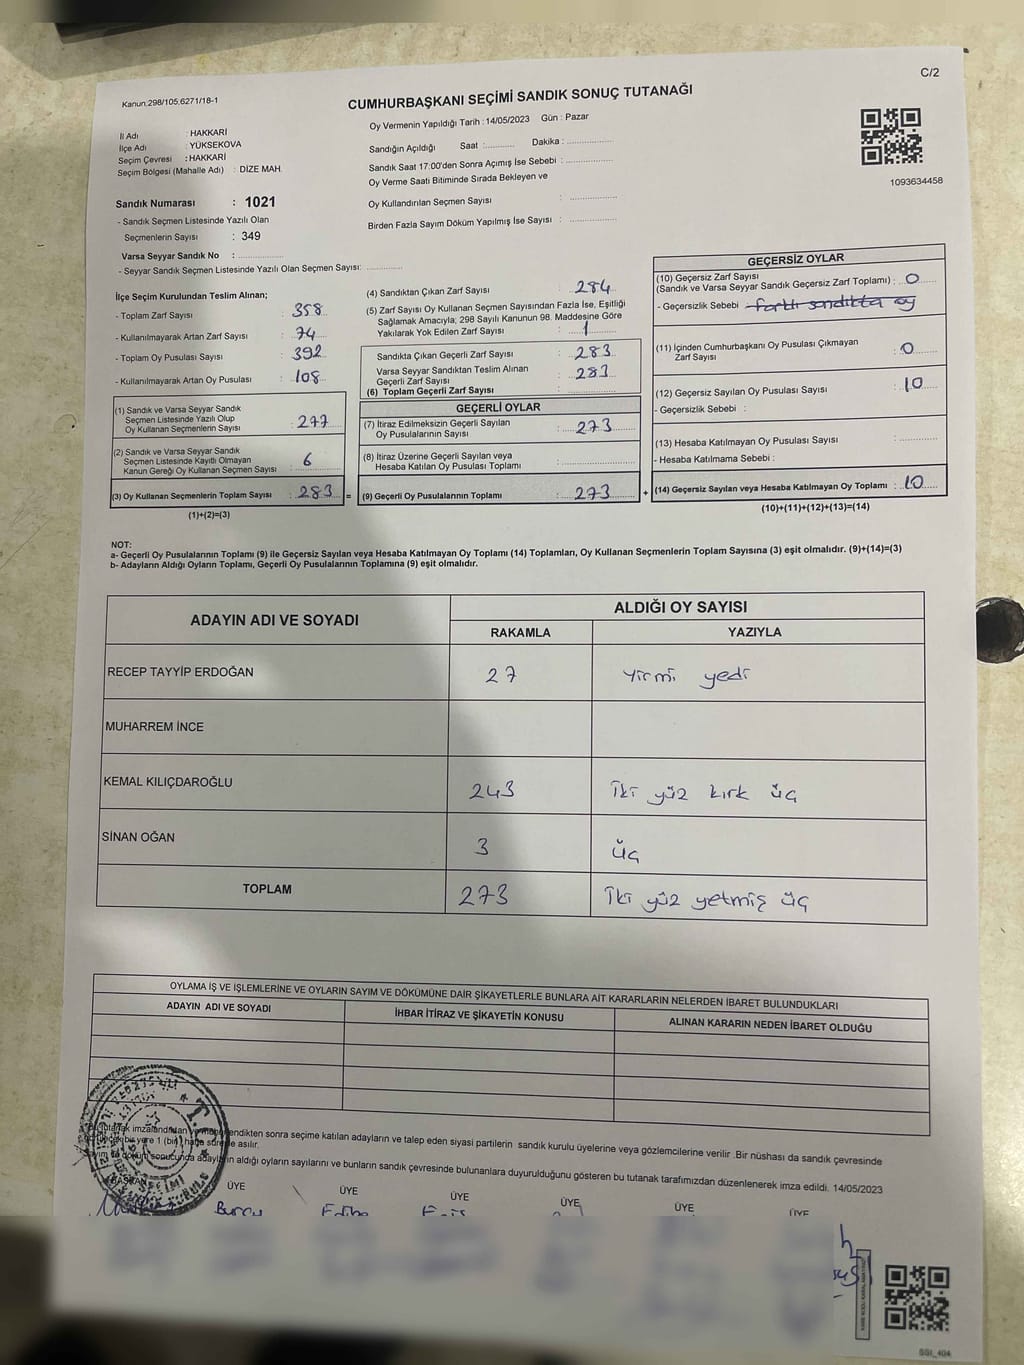 C/2
Kanun:298/105;6271/18-1
CUMHURBAŞKANI SEÇİMİ SANDIK SONUÇ TUTANAĞI
Oy Vermenin Yapıldığı Tarih : 14/05/2023 Gün : Pazar
İl Adı : HAKKARİ
İlçe Adı : YÜKSEKOVA
Seçim Çevresi : HAKKARİ
Seçim Bölgesi (Mahalle Adı) : DİZE MAH.
Sandığın Açıldığı Saat :.......... Dakika :................
Sandık Saat 17:00'den Sonra Açılmış İse Sebebi :................
Oy Verme Saati Bitiminde Sırada Bekleyen ve
Oy Kullandırılan Seçmen Sayısı :................
Birden Fazla Sayım Döküm Yapılmış İse Sayısı :................
1093634458
Sandık Numarası : 1021
- Sandık Seçmen Listesinde Yazılı Olan
Seçmenlerin Sayısı : 349
Varsa Seyyar Sandık No :................
- Seyyar Sandık Seçmen Listesinde Yazılı Olan Seçmen Sayısı:............
İlçe Seçim Kurulundan Teslim Alınan;
- Toplam Zarf Sayısı : 358
- Kullanılmayarak Artan Zarf Sayısı : 74
- Toplam Oy Pusulası Sayısı : 392
- Kullanılmayarak Artan Oy Pusulası : 108
(1) Sandık ve Varsa Seyyar Sandık
Seçmen Listesinde Yazılı Olup
Oy Kullanan Seçmenlerin Sayısı : 277
(2) Sandık ve Varsa Seyyar Sandık
Seçmen Listesinde Kayıtlı Olmayan
Kanun Gereği Oy Kullanan Seçmen Sayısı : 6
(3) Oy Kullanan Seçmenlerin Toplam Sayısı : 283 =
(1)+(2)=(3)
(4) Sandıktan Çıkan Zarf Sayısı : 284
(5) Zarf Sayısı Oy Kullanan Seçmen Sayısından Fazla İse, Eşitliği
Sağlamak Amacıyla, 298 Sayılı Kanunun 98. Maddesine Göre
Yakılarak Yok Edilen Zarf Sayısı : 1
Sandıkta Çıkan Geçerli Zarf Sayısı : 283
Varsa Seyyar Sandıktan Teslim Alınan
Geçerli Zarf Sayısı : 283
(6) Toplam Geçerli Zarf Sayısı :
GEÇERLİ OYLAR
(7) İtiraz Edilmeksizin Geçerli Sayılan
Oy Pusulalarının Sayısı : 273
(8) İtiraz Üzerine Geçerli Sayılan veya
Hesaba Katılan Oy Pusulası Toplamı :
(9) Geçerli Oy Pusulalarının Toplamı : 273 +
GEÇERSİZ OYLAR
(10) Geçersiz Zarf Sayısı
(Sandık ve Varsa Seyyar Sandık Geçersiz Zarf Toplamı) : 0
- Geçersizlik Sebebi farklı sandıkta oy
(11) İçinden Cumhurbaşkanı Oy Pusulası Çıkmayan
Zarf Sayısı : 0
(12) Geçersiz Sayılan Oy Pusulası Sayısı : 10
- Geçersizlik Sebebi :
(13) Hesaba Katılmayan Oy Pusulası Sayısı :
- Hesaba Katılmama Sebebi :
(14) Geçersiz Sayılan veya Hesaba Katılmayan Oy Toplamı : 10
(10)+(11)+(12)+(13)=(14)
NOT:
a- Geçerli Oy Pusulalarının Toplamı (9) ile Geçersiz Sayılan veya Hesaba Katılmayan Oy Toplamı (14) Toplamları, Oy Kullanan Seçmenlerin Toplam Sayısına (3) eşit olmalıdır. (9)+(14)=(3)
b- Adayların Aldığı Oyların Toplamı, Geçerli Oy Pusulalarının Toplamına (9) eşit olmalıdır.
ADAYIN ADI VE SOYADI
ALDIĞI OY SAYISI
RAKAMLA YAZIYLA
RECEP TAYYİP ERDOĞAN 27 Yirmi yedi
MUHARREM İNCE
KEMAL KILIÇDAROĞLU 243 İki yüz kırk üç
SİNAN OĞAN 3 üç
TOPLAM 273 İki yüz yetmiş üç
OYLAMA İŞ VE İŞLEMLERİNE VE OYLARIN SAYIM VE DÖKÜMÜNE DAİR ŞİKAYETLERLE BUNLARA AİT KARARLARIN NELERDEN İBARET BULUNDUKLARI
ADAYIN ADI VE SOYADI İHBAR İTİRAZ VE ŞİKAYETİN KONUSU ALINAN KARARIN NEDEN İBARET OLDUĞU
tutanak imzalandıktan endikten sonra seçime katılan adayların ve talep eden siyasi partilerin sandık kurulu üyelerine veya gözlemcilerine verilir .Bir nüshası da sandık çevresinde
bir yere 1 (bir) hafta süreyle asılır.
sonucunda adayların aldığı oyların sayılarını ve bunların sandık çevresinde bulunanlara duyurulduğunu gösteren bu tutanak tarafımızdan düzenlenerek imza edildi. 14/05/2023
BAŞKAN ÜYE ÜYE ÜYE ÜYE ÜYE ÜYE
Burcu
SSI_404